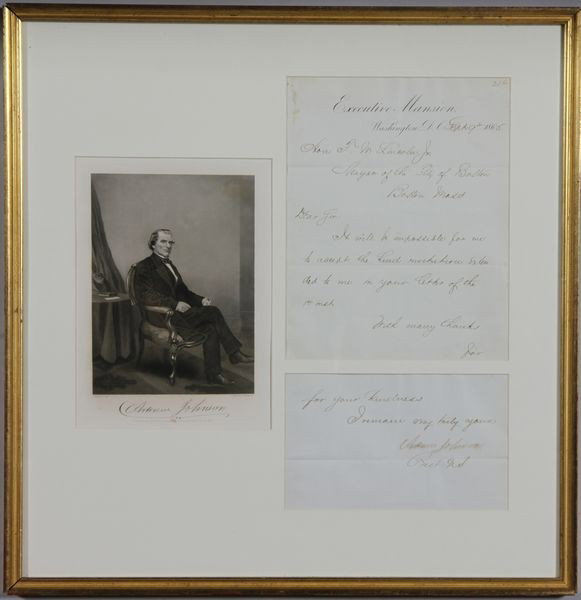 Executive Mansion,
Washington, D. C. Sept 9th 1865
Hon F. W. Lincoln Jr
Mayor of the City of Boston
Boston Mass
Dear Sir
It will be impossible for me
to accept the kind invitation exten
ded to me in your letter of the
inst.
With many thanks
for
for your kindness
I remain very truly yours
Andrew Johnson
Prest U.S
Andrew Johnson